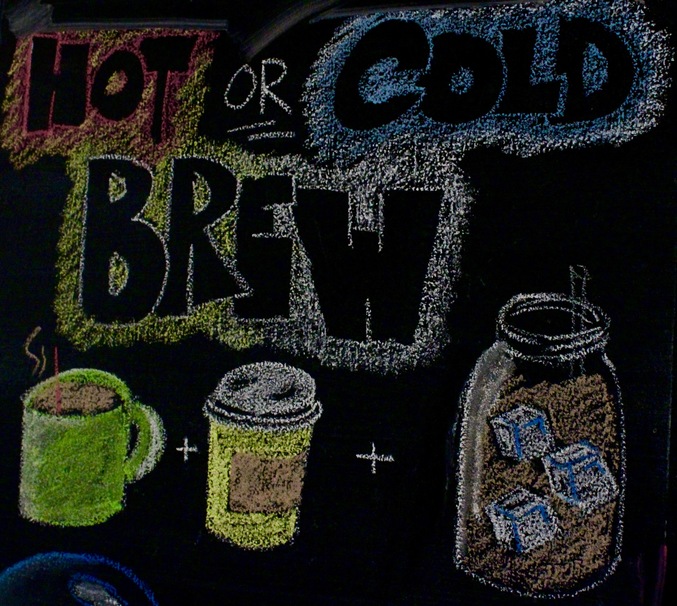 HOT OR COLD
BREW
+ +